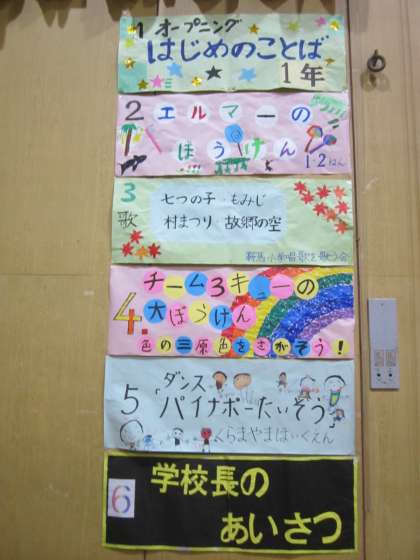 1 オープニング
はじめのことば
1年
2 エルマーの
ぼうけん
1・2ねん
3 七つの子・もみじ
歌 村まつり 故郷の空
鞍馬小学唱歌を歌う会
チーム3キューの
4. 大ぼうけん
色の三原色をさがそう!
ダンス
5 パイナポーたいそう
くらまやまほいくえん
学校長の
6 あいさつ